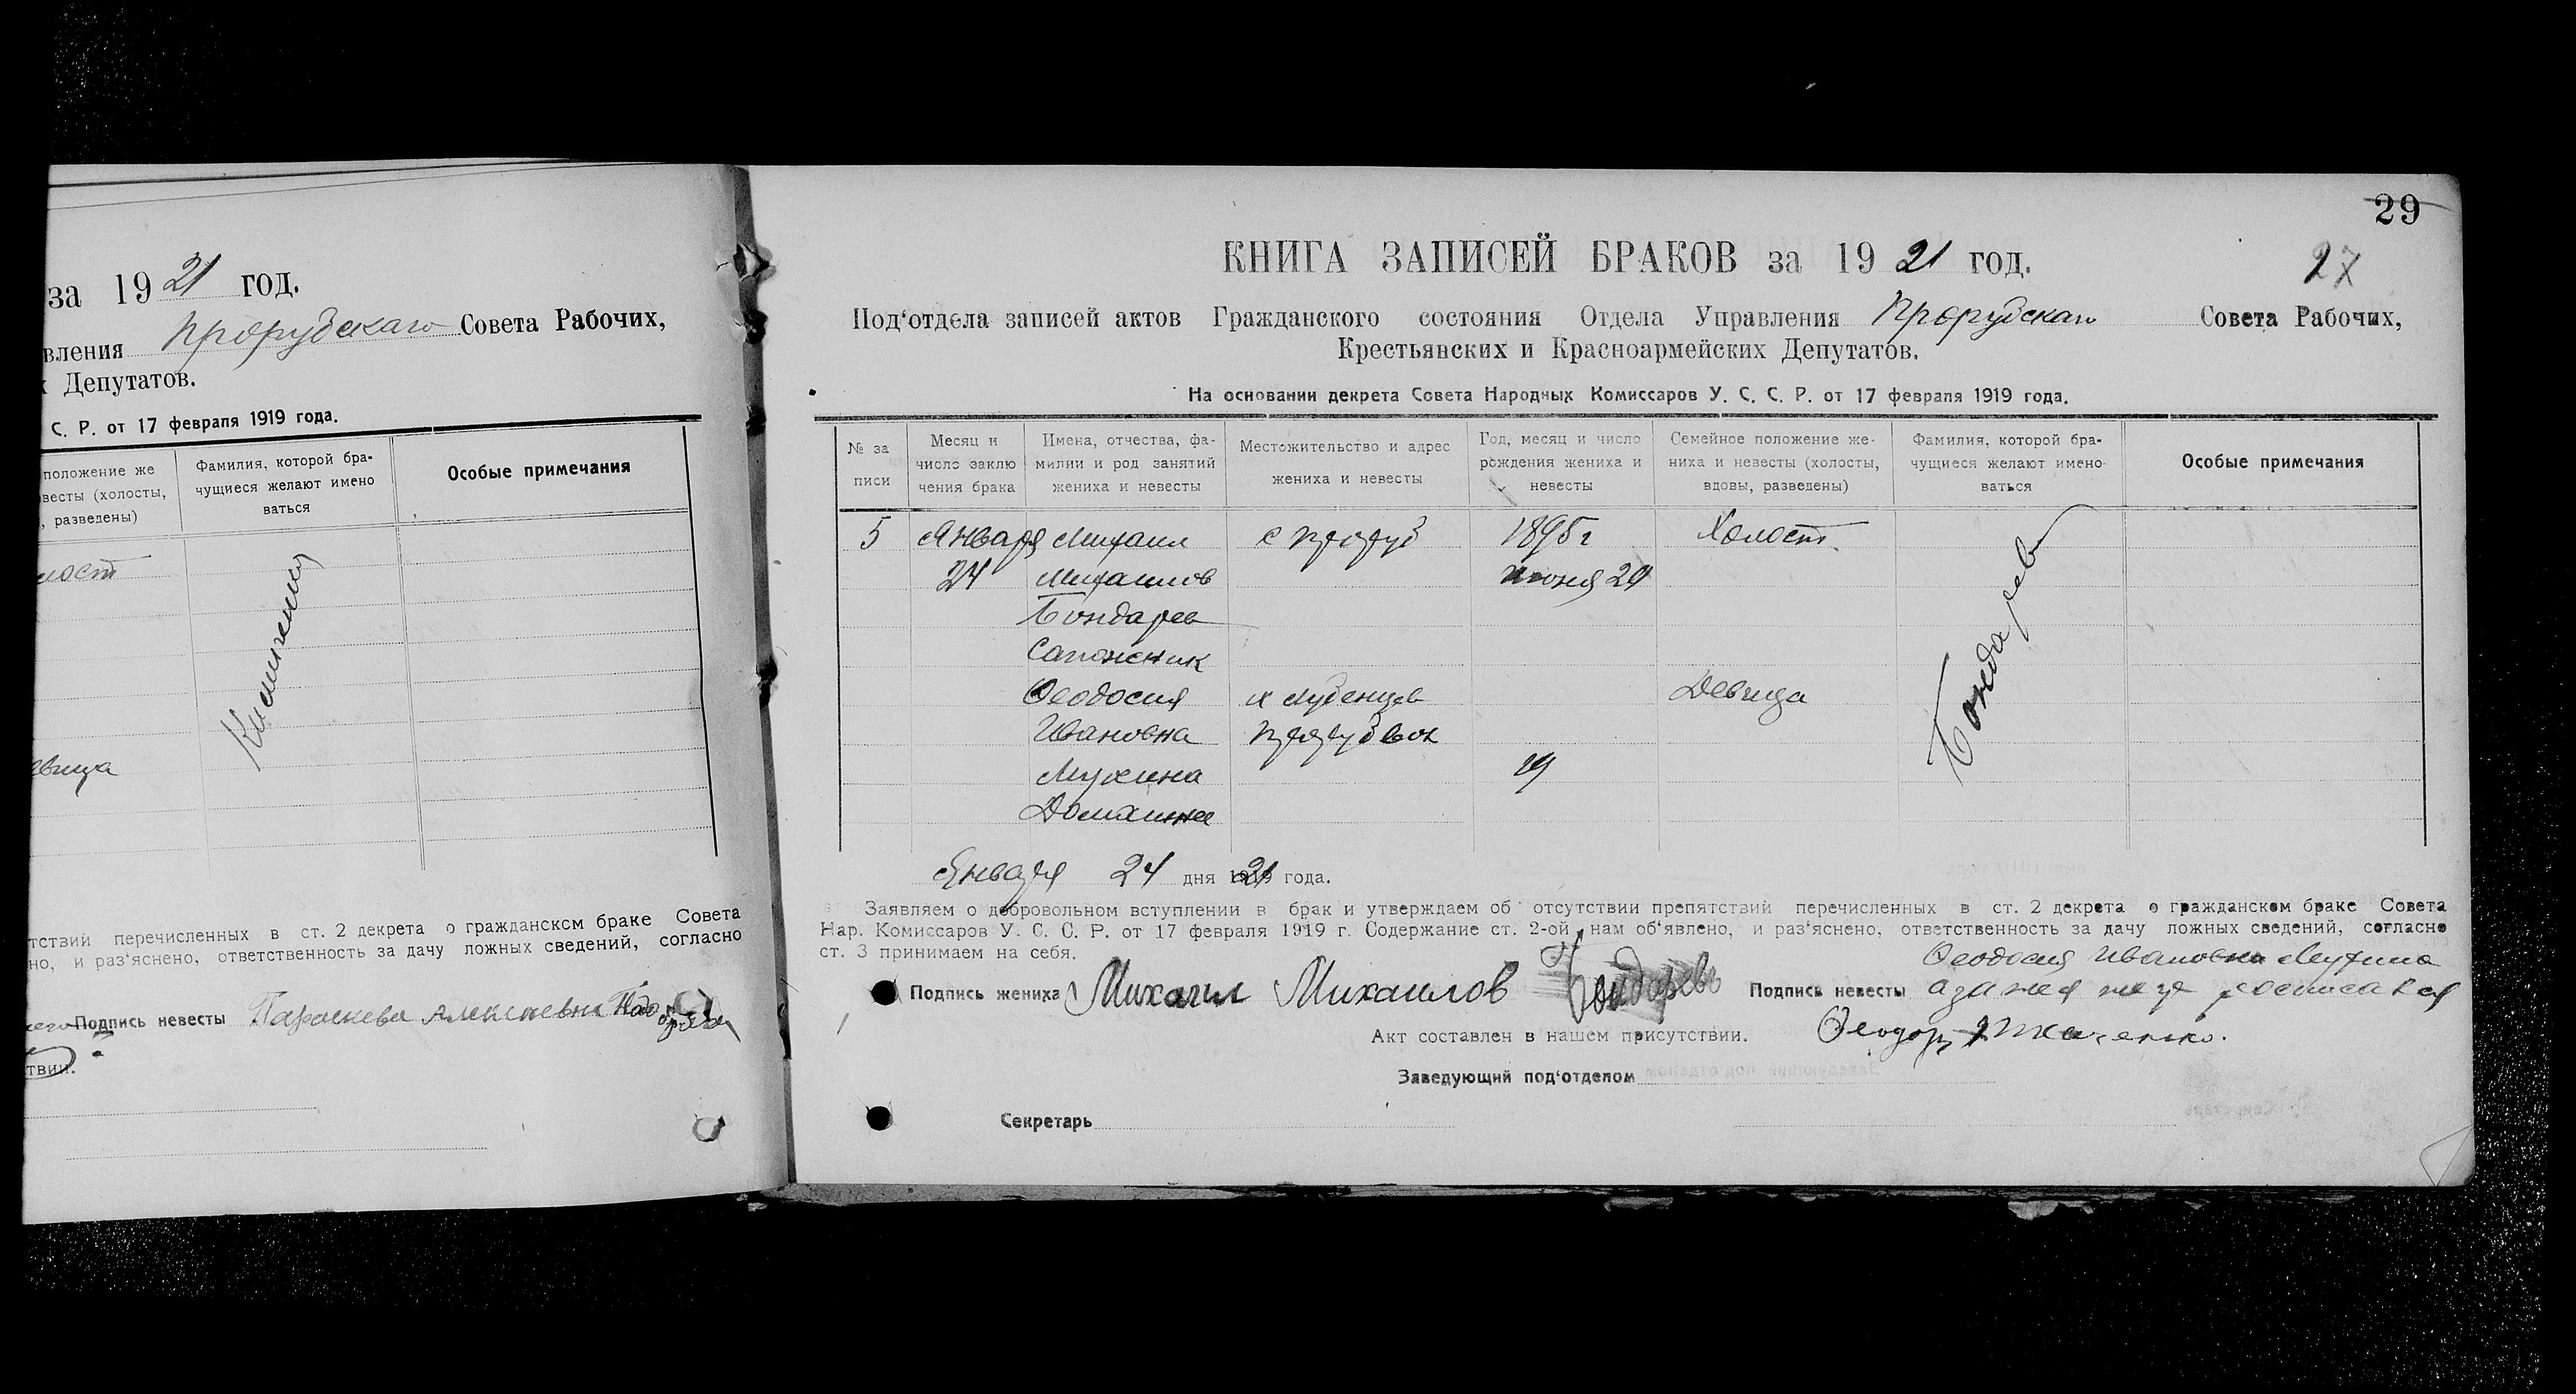 за 19 21 год.
вления Прорубскаго Совета Рабочих,
х Депутатов.
С. Р. от 17 февраля 1919 года.
положение же
весты (холосты,
, разведены)
Фамилия, которой бра-
чущиеся желают имено
ваться
Особые примечания
лост
евица
тствий перечисленных в ст. 2 декрета о гражданском браке Совета
но, и раз‘яснено, ответственность за дачу ложных сведений, согласно
Подпись невесты
твии.
29
27
КНИГА ЗАПИСЕЙ БРАКОВ за 19 21 год.
Под‘отдела записей актов Гражданского состояния Отдела Управления Прорубскаго Совета Рабочих,
Крестьянских и Красноармейских Депутатов.
На основании декрета Совета Народных Комиссаров У. С. С. Р. от 17 февраля 1919 года.
№ за
писи
Месяц и
число заклю
чения брака
Имена, отчества, фа-
милии и род занятий
жениха и невесты
Местожительство и адрес
жениха и невесты
Год, месяц и число
рождения жениха и
невесты
Семейное положение же-
ниха и невесты (холосты,
вдовы, разведены)
Фамилия, которой бра-
чущиеся желают имено-
ваться
Особые примечания
5 Января Михаил с Проруб 1895 г Холост
24 Михаилов Июня 29
Бондарев
Сапожник
Феодосия х Лубенцев Девица
Ивановна Проруб вол
Мухина 19
Домашнее
Бондарев
Января 24 дня 1921 года.
Заявляем о добровольном вступлении в брак и утверждаем об отсутствии препятствий перечисленных в ст. 2 декрета о гражданском браке Совета
Нар. Комиссаров У. С. С. Р. от 17 февраля 1919 г. Содержание ст. 2-ой, нам об‘явлено, и раз‘яснено, ответственность за дачу ложных сведений, согласно
ст. 3 принимаем на себя.
Подпись жениха Михаил Михаилов Бондарев
Подпись невесты Феодосия Ивановна Мухина
а за нея росписался
Феодор Ткаченко.
Акт составлен в нашем присутствии.
Заведующий под‘отделом
Секретарь